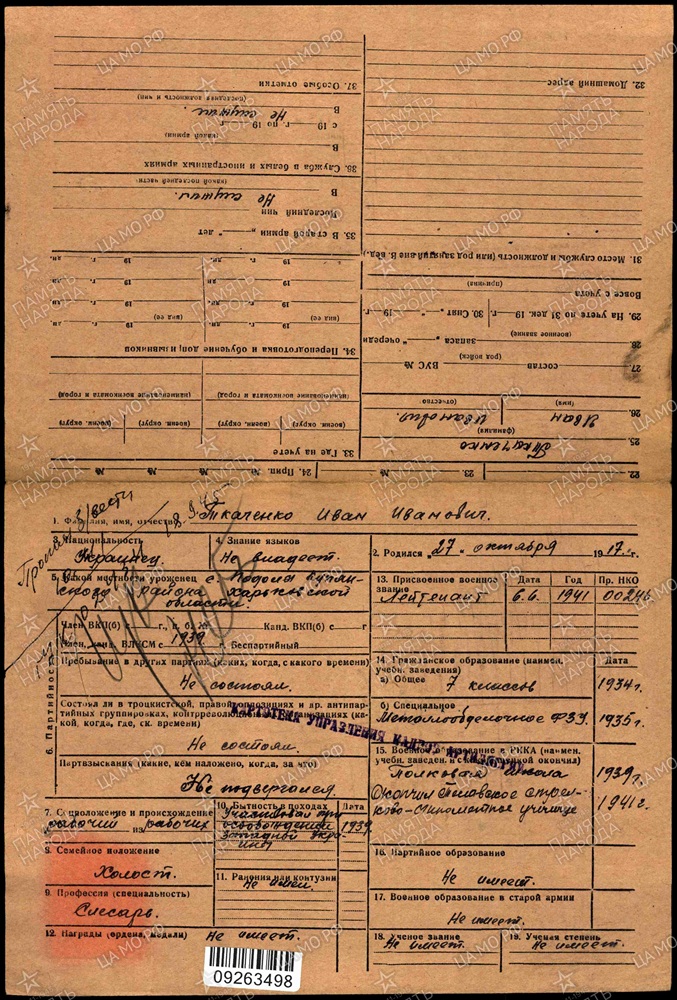 22.
23.
24. Прип. №
№
№
№
25. Ткаченко
(фамилия)
26. Иван
Иванович.
(имя)
отчество
27.
состав
ВУС №
(род войск)
28.
запаса
очереди
(военное звание)
29. На учете по 31 дек. 19 г.
30. Снят " " 19 г.
Вовсе с учета
(причина)
31. Место службы и должность (или род занятий вне В. вед.)
32. Домашний адрес
33. Где на учете
(воен. округ)
(воен. округ)
(воен. округ)
(воен. округ)
(наименование военкомата и город)
(наименование военкомата и город)
34. Переподготовка и обучение доприз
(вид ее)
(вид ее)
35. В старой армии „ — “ лет
Последний чин
В Не служил.
(какой последней части)
36. Служба в белых и иностранных армиях
В
(какой армии)
с 19 г. по 19 г.
В Не служил.
(последняя должность и чин)
37. Особые отметки
Пропал б/вести
1. Фамилия, имя, отчество Ткаченко Иван Иванович.
3. Национальность
Украинец
4. Знание языков
Не владеет.
2. Родился "27" октября 1917 г.
5. Какой местности уроженец с.
района Харьковской
области.
13. Присвоенное военное звание
Дата
Год
Пр. НКО
Лейтенант
6.6.
1941
00246
6. Партийность
Член ВКП(б) с — г., п. б. №
Канд. ВКП(б) с
Член, канд. ВЛКСМ с 1939 г.
Беспартийный
Пребывание в других партиях (каких, когда, с какого времени)
Не состоял.
Состоял ли в троцкистской, правой оппозициях и др. антипар-
тийных группировках, контрреволюционных организациях (ка-
кой, когда, где, ск. времени)
Не состоял.
Партвзыскания (какие, кем наложено, когда, за что)
Не подвергался.
14. Гражданское образование (наимен.
учебн. заведения)
Дата
а) Общее
7 классов
1934 г.
б) Специальное
ФЗУ.
1935 г.
КАРТОТЕКА УПРАВЛЕНИЯ КАДРОВ АРТИЛЛЕРИИ
15. Военное образование в РККА (наимен.
учебн. заведен. и окончил)
Полковая школа
1939 г.
Окончил стрел-
ково-пулеметное училище
1941 г.
7. Соцположение и происхождение
рабочий из рабочих
10. Бытность в походах
Дата
Участвовал при
освобождении
западной Укра-
ины
1939
8. Семейное положение
Холост.
11. Ранения или контузии
Не имел.
16. Партийное образование
Не имеет.
9. Профессия (специальность)
Слесарь.
17. Военное образование в старой армии
Не имеет.
12. Награды (ордена, медали) Не имеет.
18. Ученое звание
Не имеет.
19. Ученая степень
Не имеет.
09263498
ПАМЯТЬ НАРОДА
ЦАМО.РФ